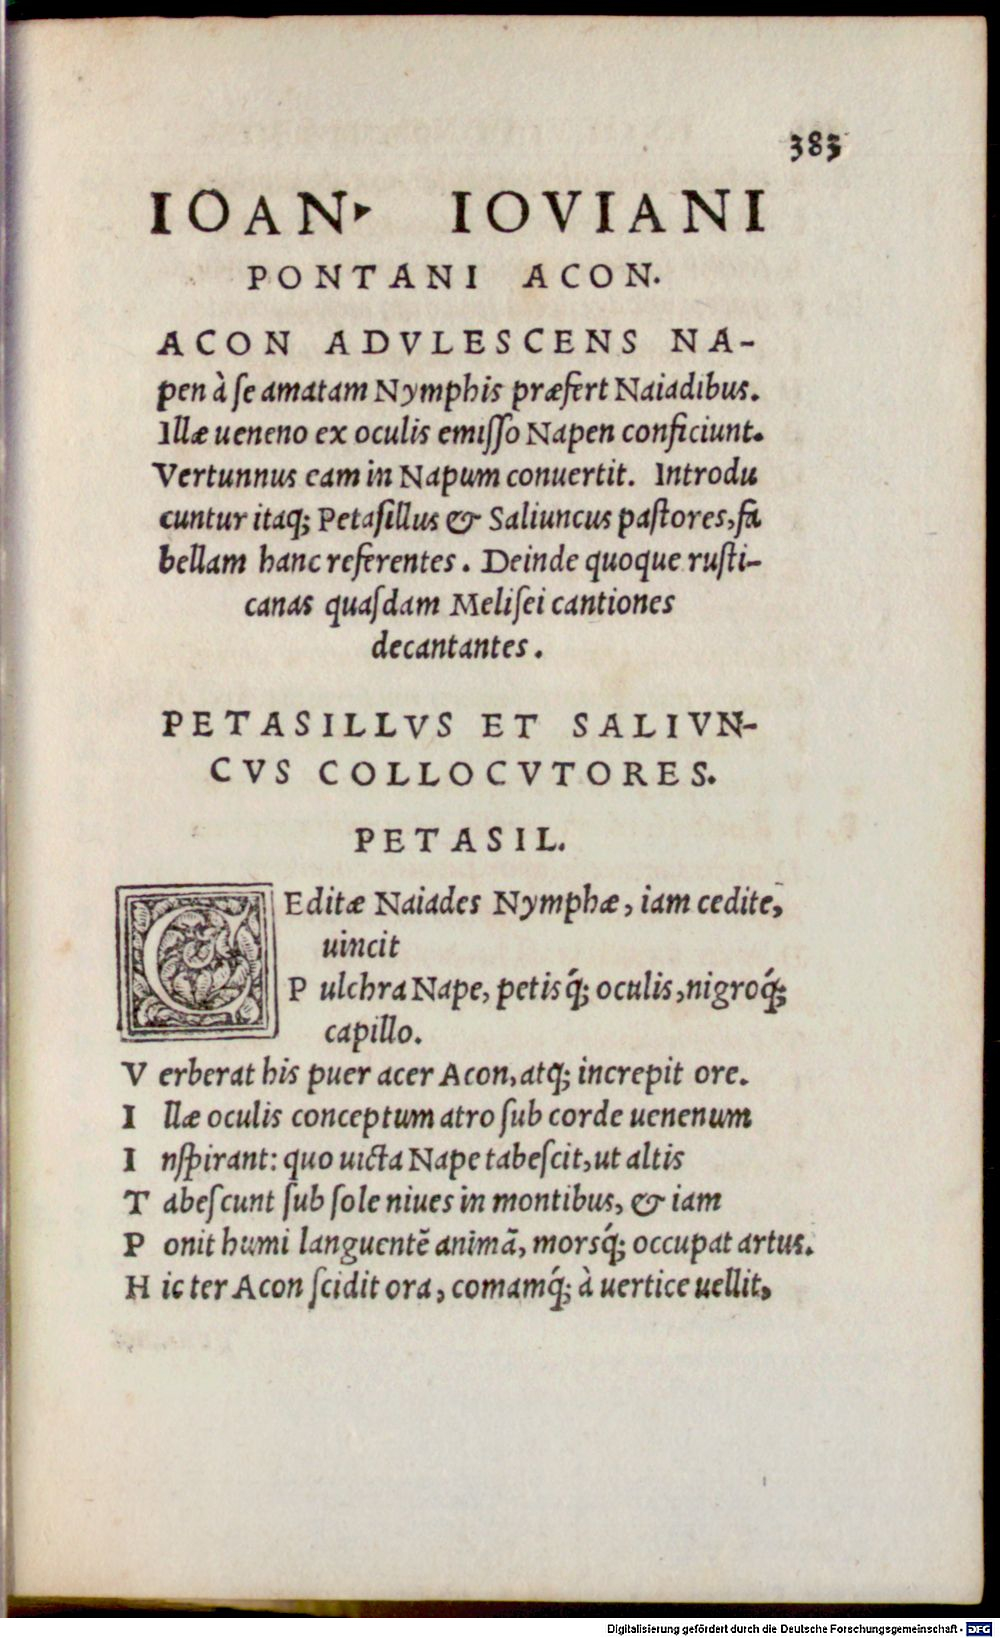 383
IOAN. IOVIANI
PONTANI ACON.
ACON ADVLESCENS NA-
pen à ſe amatam Nymphis præfert Naiadibus.
Illæ ueneno ex oculis emiſſo Napen conficiunt.
Vertunnus eam in Napum conuertit. Introdu
cuntur itaq; Petaſillus & Saliuncus paſtores, fa
bellam hanc referentes. Deinde quoque ruſti-
canas quaſdam Meliſei cantiones
decantantes.
PETASILLVS ET SALIVN-
CVS COLLOCVTORES.
PETASIL.
CEditæ Naiades Nymphæ, iam cedite,
uincit
P ulchra Nape, petisq́; oculis, nigroq́;
capillo.
V erberat his puer acer Acon, atq; increpit ore.
I llæ oculis conceptum atro ſub corde uenenum
I nſpirant: quo uicta Nape tabeſcit, ut altis
T abeſcunt ſub ſole niues in montibus, & iam
P onit humi languentē animā, morsq́; occupat artus.
H ic ter Acon ſcidit ora, comamq́; à uertice uellit,
Digitalisierung gefördert durch die Deutsche Forschungsgemeinschaft - DFG